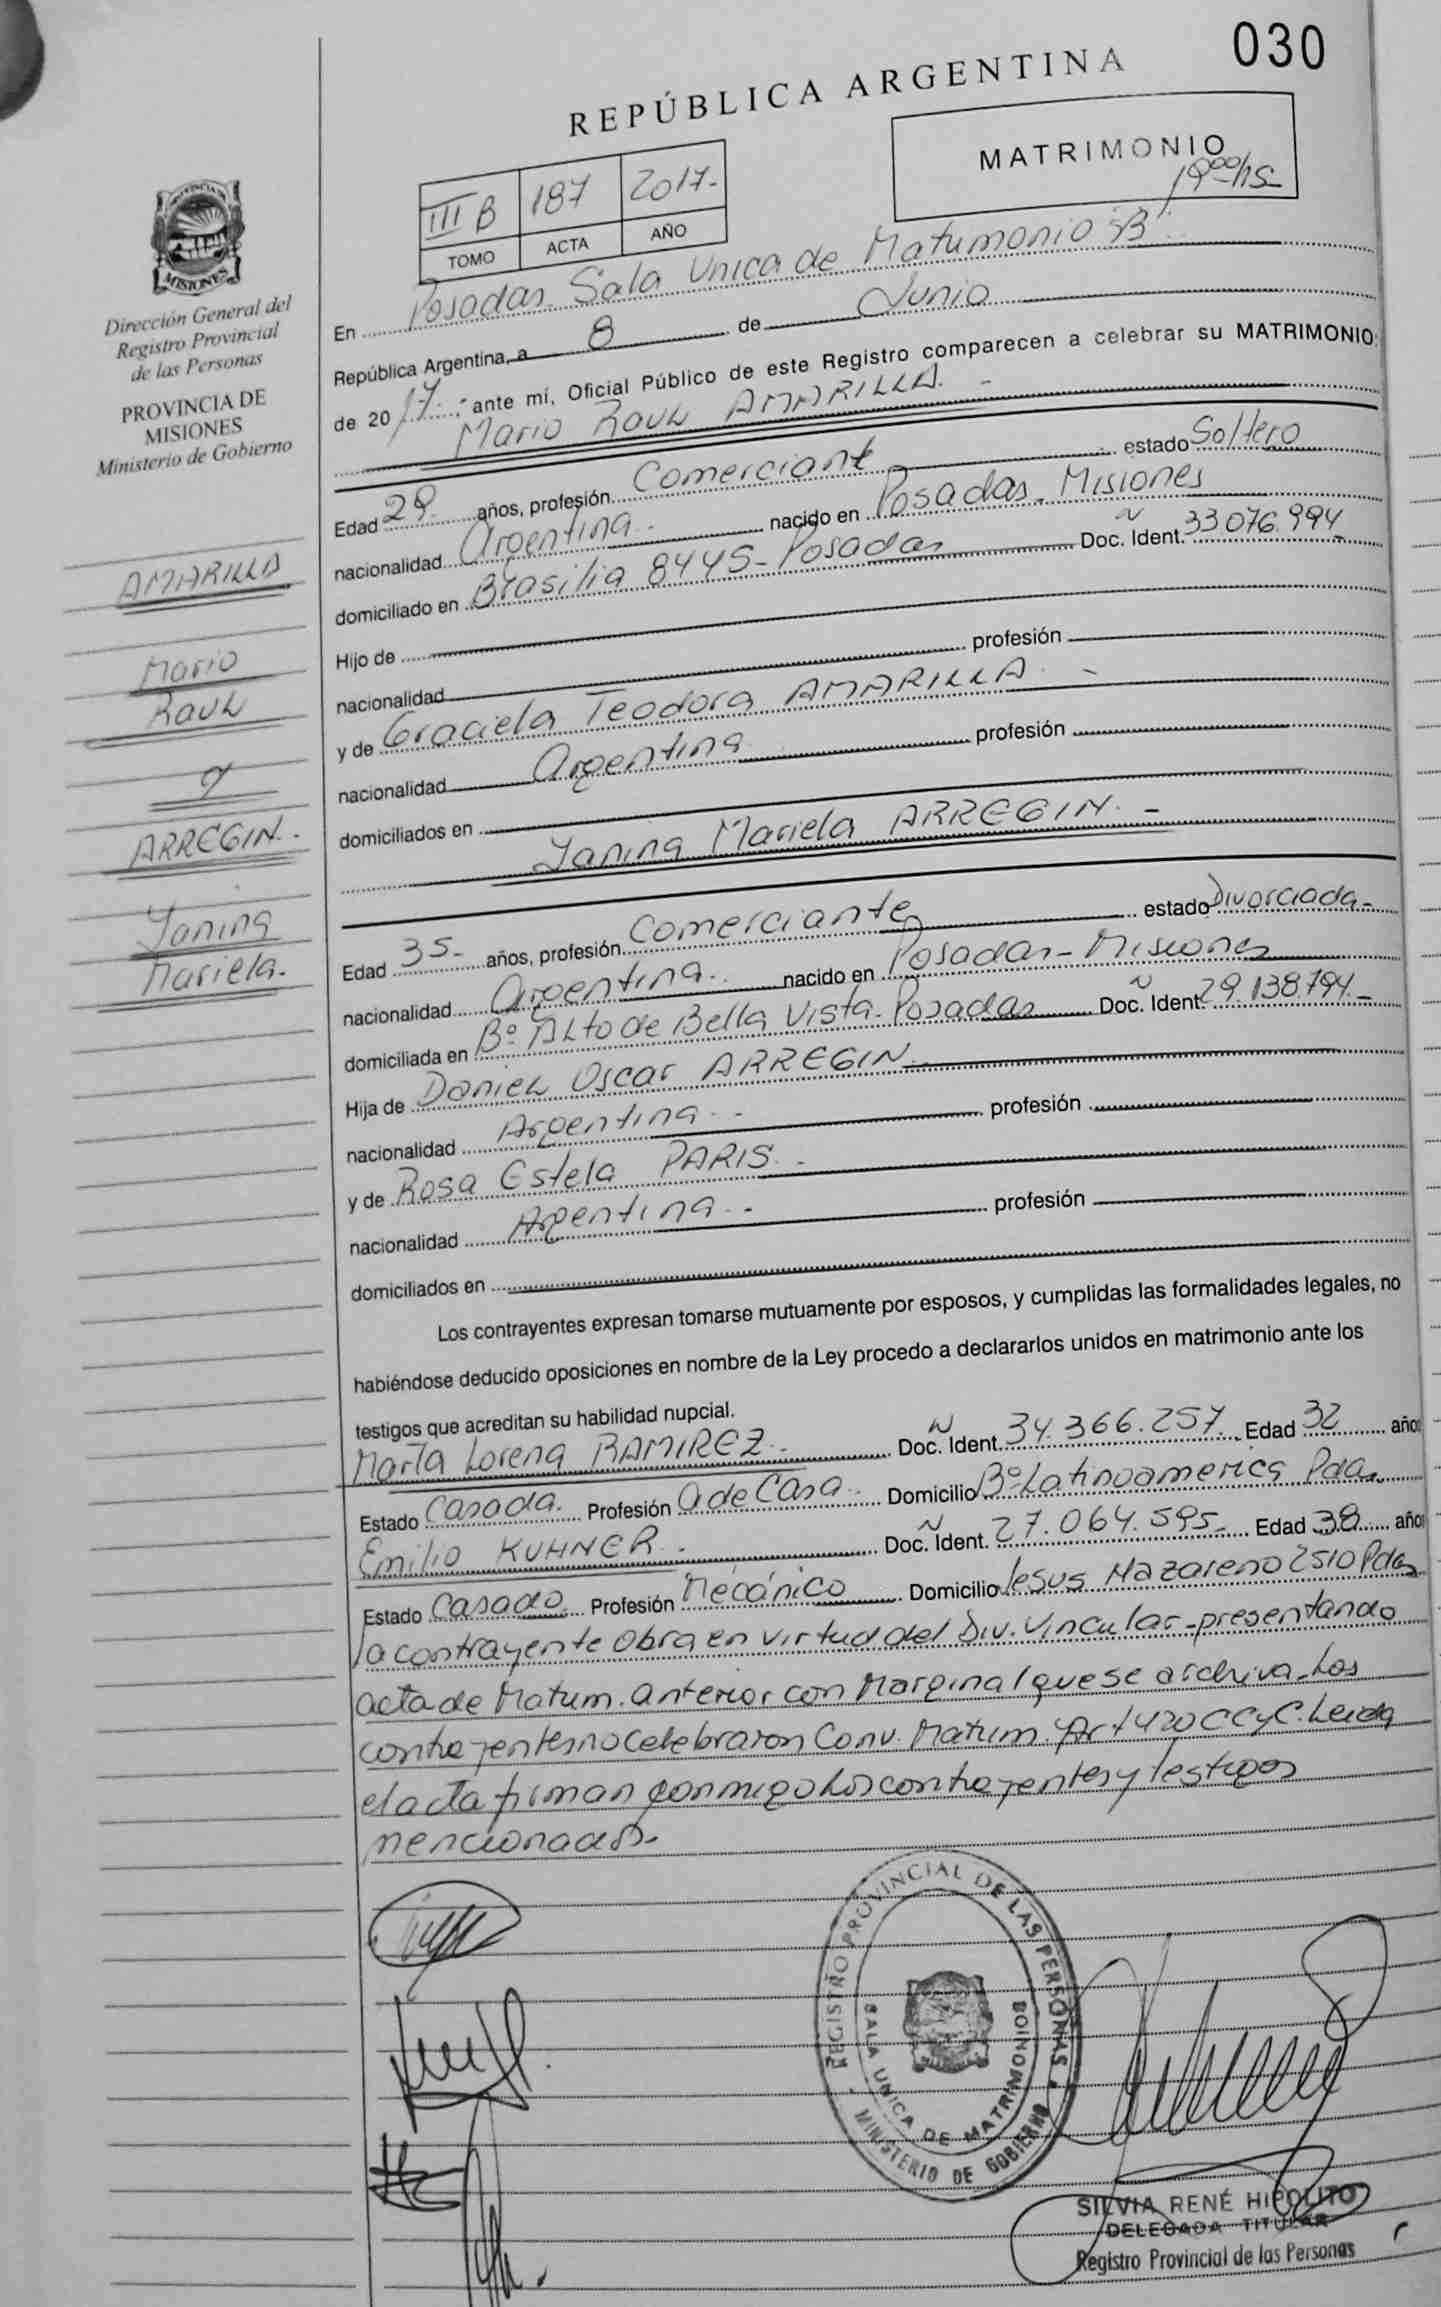 030
REPÚBLICA ARGENTINA
III B 187 2017-
TOMO ACTA AÑO
MATRIMONIO
19 00 hs
PROVINCIA DE
MISIONES
Dirección General del
Registro Provincial
de las Personas
PROVINCIA DE
MISIONES
Ministerio de Gobierno
AMARILLA
Mario
Raul
y
ARREGIN.-
Yanina
Mariela.-
En Posadas Sala Unica de Matrimonio "B"
República Argentina, a 8 de Junio
de 2017.-, ante mí, Oficial Público de este Registro comparecen a celebrar su MATRIMONIO:
Mario Raul AMARILLA.-
Edad 29. años, profesión Comerciante estado Soltero
nacionalidad Argentina.- nacido en Posadas - Misiones
domiciliado en Brasilia 8445 - Posadas Doc. Ident. N 33 076.994
Hijo de
nacionalidad profesión
y de Graciela Teodora AMARILLA.-
nacionalidad Argentina profesión
domiciliados en
Yanina Mariela ARREGIN.-
Edad 35- años, profesión Comerciante estado Divorciada-
nacionalidad Argentina.- nacido en Posadas - Misiones
domiciliada en Bº ALto de Bella Vista - Posadas Doc. Ident. N 29.138.794.-
Hija de Daniel Oscar ARREGIN
nacionalidad Argentina.- profesión
y de Rosa Estela PARIS.-
nacionalidad Argentina.- profesión
domiciliados en
Los contrayentes expresan tomarse mutuamente por esposos, y cumplidas las formalidades legales, no
habiéndose deducido oposiciones en nombre de la Ley procedo a declararlos unidos en matrimonio ante los
testigos que acreditan su habilidad nupcial.
Marta Lorena RAMIREZ.- Doc. Ident. N 34.366.257. Edad 32 años
Estado Casada. Profesión A de Casa.- Domicilio Bº Latinoamerica Pdas
Emilio KUHNER.- Doc. Ident. N 27.064.595- Edad 38 años
Estado Casado Profesión Mecánico Domicilio Jesus Nazareno 2510 Pdas
la contrayente obra en virtud del Div. Vincular - presentando
acta de Matrim. anterior con Marginal que se archiva - Los
contrayentes no celebraron Conv. Matrim. Art 420 CCyC. Leida
el acta firman conmigo los contrayentes y testigos
mencionados.-
REGISTRO PROVINCIAL DE LAS PERSONAS
SALA UNICA DE MATRIMONIOS
MINISTERIO DE GOBIERNO
SILVIA RENÉ HIPOLITO
DELEGADA TITULAR
Registro Provincial de las Personas